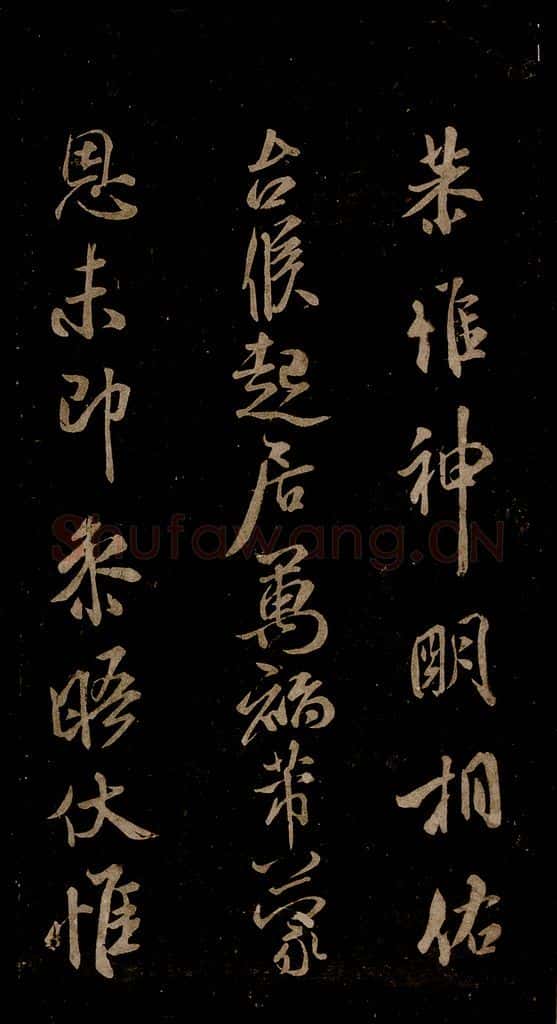 恭惟神明相佑
台候起居萬福芾蒙
恩未即参晤伏惟
Shufawang.CN